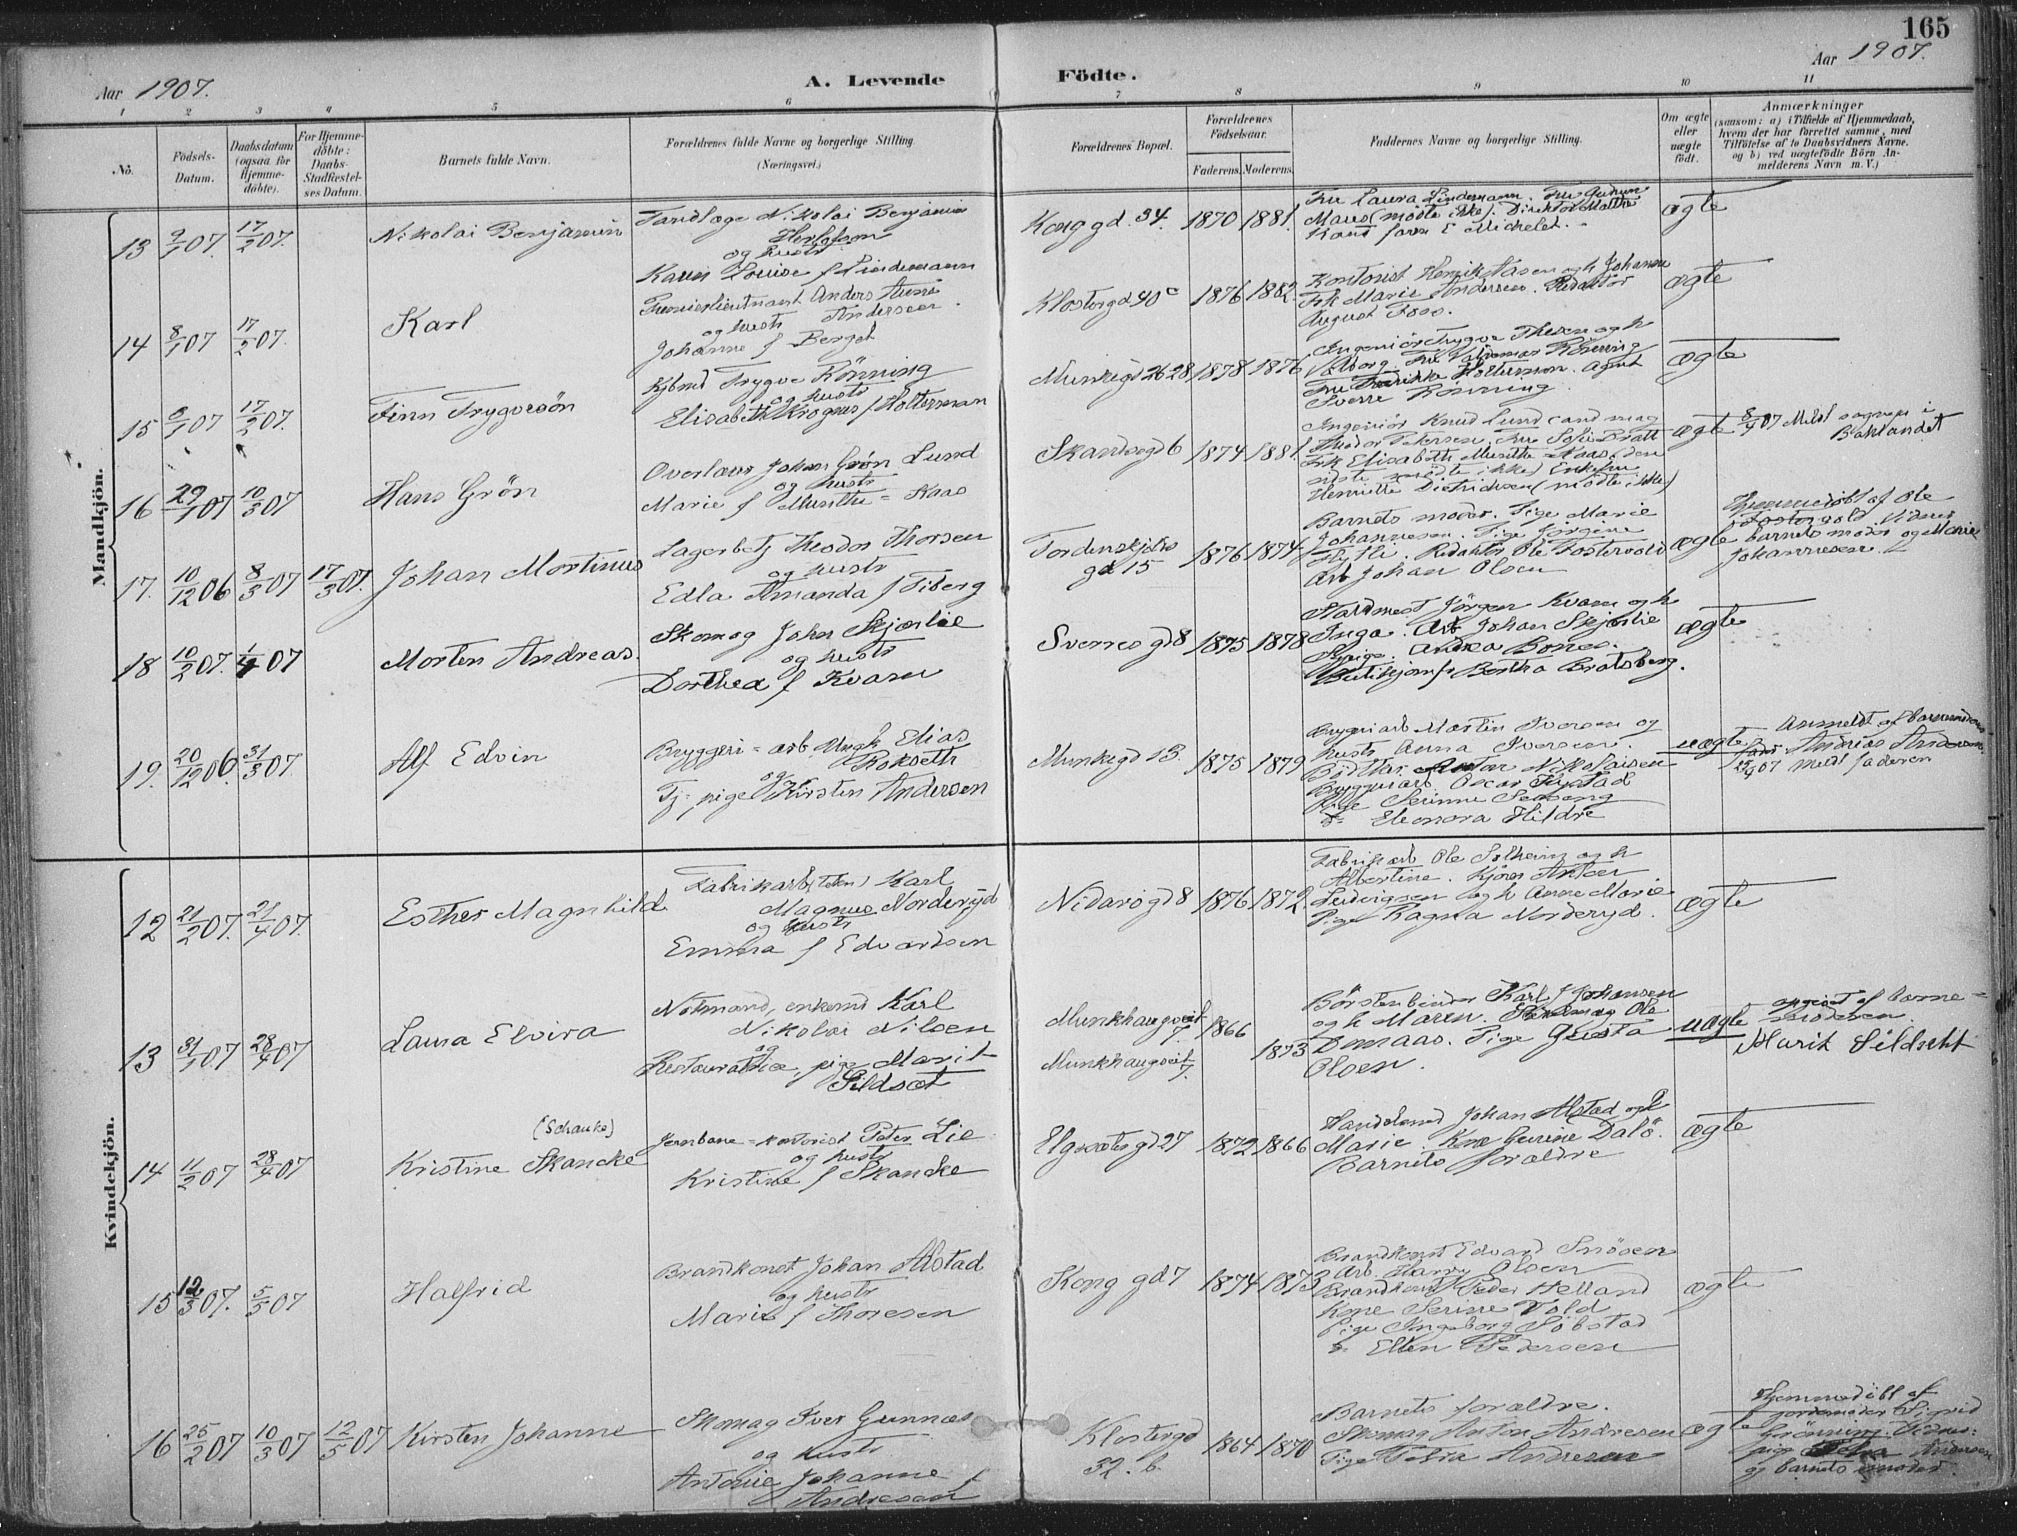 165
Aar 1907.
A. Levende
Födte.
Aar 1907.
1 2 3 4 5 6 7 8 9 10 11
No.
Födsels-
Datum.
Daabsdatum
(ogsaa for
Hjemme-
döbte).
For Hjemme-
döbte:
Daabs-
Stadfestel-
ses Datum.
Barnets fulde Navn.
Forældrenes fulde Navne og borgerlige Stilling.
(Næringsvei.)
Forældrenes Bopæl.
Forældrenes
Födselsaar.
Faderens. Moderens.
Faddernes Navne og borgerlige Stilling.
Om ægte
eller
uægte
födt.
Anmærkninger
(saasom: a) i Tilfælde af Hjemmedaab,
hvem der har forrettet samme, med
Tilföielse af to Daabsvidners Navne.
og b) ved uægtefödte Börn An-
melderens Navn m. V.)
Mandkjön.
13 9/1 07. 17/2 07.
Nikolai Benjamin
Tandlæge Nikolai Benjamin
og hustr
Karen Louise f Lindemann
Konggd. 34. 1870 1881.
Fru Laura Lindemann. Fru Gudrun
(mødte ikke). Direktør
Kand E Michelet.
ægte
14 8/1 07 17/2 07.
Karl
Premierlieutnant Anders Aune
Andersen
og hustr
Johanne f Berget
Klostergd 40c 1876 1882.
Kontorist Henrik Aasen og h Johanne
Frk Marie Andersen. Redaktør
August Foss.
ægte
15 8/1 07 17/2 07.
Finn Trygvesön
Kjbmd Trygve Rönning
og hustr
Elisabeth Krogness f Holterman
Munkegd 26 28 1878 1876
Ingeniör Trygve Thesen og h
Valborg. Fru Rönning
Fru Fredrikke Holterman. Agent
Sverre Rönning.
ægte
16 29/1 07 10/3 07
Hans Grön
Overlærer Johan Grön Lund
og hustr
Marie f Munthe-Kaas
Skandsegd 6 1874 1881
Ingeniör Knud Lund cand mag
Theodor Petersen. Fru Sofie Bratt
Frk Elisabeth Munthe-Kaas. den
sidste mødte ikke) Enkefru
Henriette Dietrichson (mødte ikke)
ægte
8/4 07 Meldt sognepr i
Baklandet
17. 10/12 06 8/3 07 17/3 07.
Johan Mortinus
Lagerbetj Theodor Thorsen
og hustr
Edla Amanda f Fiberg
Tordenskjolds
gd 15 1876 1874
Barnets moder. Pige Marie
Johannesen. Pige Jörgine
Redaktör Ole Fostervold
Arb Johan Olsen
ægte
Hjemmedöbt af Ole
Fostervold Vidner
barnets moder og Marie
Johannesen.
18 10/2 07. 1/4 07
Morten Andreas.
Skomag John Skjærlie
og hustr
Dorthea f Kvam
Sverresgd 8 1875 1878
Staldmest Jörgen Kvam og h
Inga. Arb Johan Skjærlie
Andrea Bones.
Butikjomfr Bertha Bratsberg.
ægte
19. 20/12 06. 31/3 07
Alf Edvin
Bryggeri-arb Ungk Elias
Rokseth
og
Tj-pige Kirsten Andersen
Munkegd 13. 1875 1879
Bryggeriarb Martin Iversen og
hustr Anna Iversen.
Bödtker Anton Nikolaisen
Bryggeriarb Oscar Fygstad
Pige Serine
do Eleonora Hildre
uægte
Anmeldt af barnemoderens
fader Andreas Andersen
07 Meldt faderen
Kvindekjön.
12 21/2 07. 21/4 07.
Esther Magnhild
Fabrikarb. Karl
Magnus Norderyd
og hustr
Emma f Edvardsen
Nidarogd 8 1876 1872.
Fabrikarb Ole Solheim og h
Albertine. Kjörer Anton
Ludvigsen og h Anne Marie
Pige Ragna Norderyd.
ægte
13 31/1 07 28/4 07
Laura Elvira
Notmand, enkemd Karl
Nikolai Nilsen
og
Restauratrice, pige Marit
Sildset
Munkhaugveit
7. 1866
Munkhaugveit
7. 1873
Börstenbinder Karl J Johansen
og h Maren. Skomag Ole
Dmaas. Pige Gusta
Olsen.
uægte
opgivet af barne-
moderen.
Marit Sildset
14 11/2 07 28/4 07
(Schanke)
Kristine Skancke
Jernbane-kontorist Peter Lie
og hustr
Kristine f Skancke
Elgsætergd 27 1872 1866
Handelsmd Johan Alstad og h
Marie. Kone Gurine Dalö.
Barnets forældre
ægte
15 12/3 07. 5/5 07
Halfrid
Brandkonst Johan Alstad
og hustr
Marie f Thoresen
Konggd 7 1874 1873
Brandkonst Edvard Snösen
Arb. Harry Olsen
Brandkonst Peder Helland
Kone Serine Vold
Pige Ingeborg Söbstad
do Ellen Pedersen
ægte
16 25/2 07 10/3 07 12/5 07
Kirsten Johanne
Skomag Iver Gunnæs
og hustr
Antonie Johanne f
Andresen
Klostergd
32. b. 1864 1870
Barnets forældre.
Skomag Anton Andresen
Pige Petra Andresen
ægte
Hjemmedöbt af
jordemoder Sigrid
Grönning. Vidner:
pige Petra Andresen
og barnets moder.